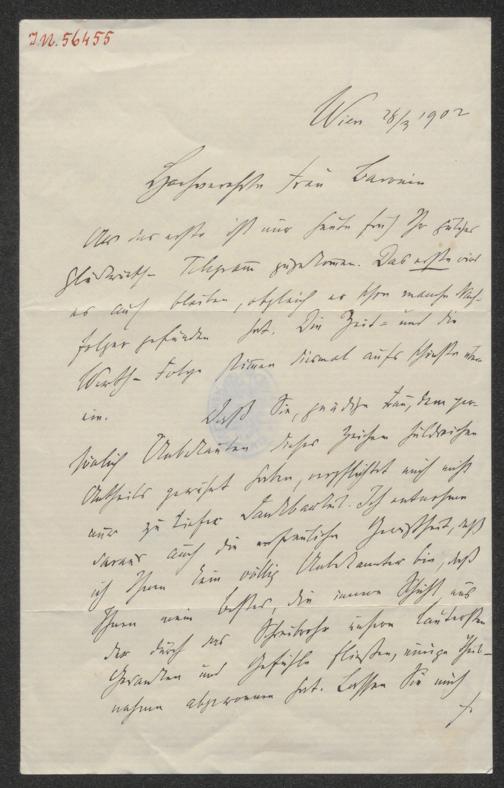 I.N. 56455
Wien 28/3 1902
Hochverehrte Frau Baronin
Als das erste ist mir heute früh Ihr gütiges
Glückwunsch-Telegramm zugekommen. Das erste wird
es auch bleiben, obgleich es schon manche Nach-
folger gefunden hat. Die Zeit- und die
Werth-Folge stimmen diesmal aufs schönste über-
ein. Daß Sie, gnädige Frau, dem per-
sönlich Unbekannten dieses Zeichen huldreichen
Antheils gewährt haben, verpflichtet mich nicht
nur zu tiefer Dankbarkeit. Ich entnehme
daraus auch die erfreuliche Gewißheit, daß
ich Ihnen kein völlig Unbekannter bin, daß
Ihnen mein bestes, die innere Schicht, aus
der durch das Schreibrohr unsere lautersten
Gedanken und Gefühle fließen, einige Theil-
nahme abgewonnen hat. Lassen Sie mich